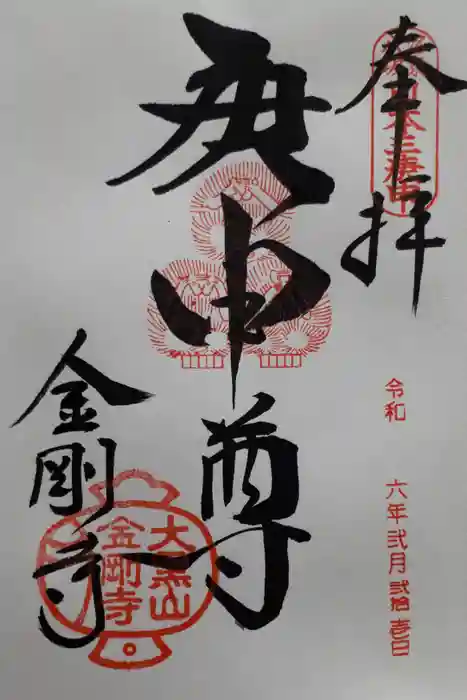 奉拝
日本三庚申
令和 六年弐月弐拾壱日
庚申尊
金剛寺
大黒山
金剛寺